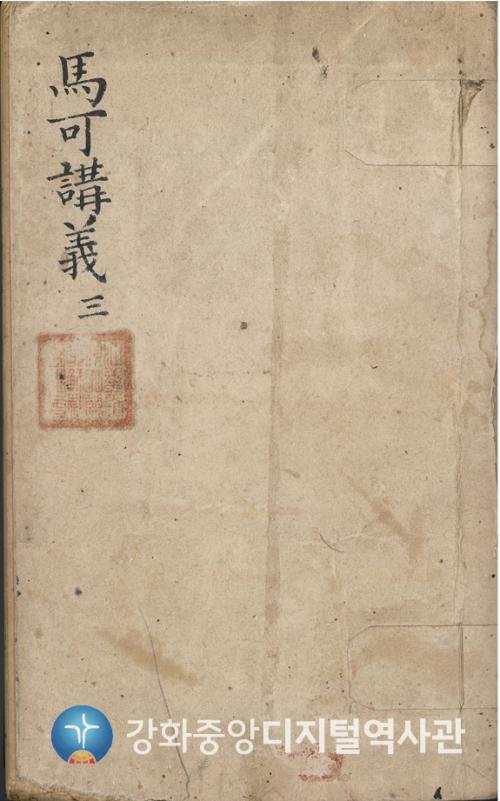 馬可講義 三
강화중앙디지털역사관